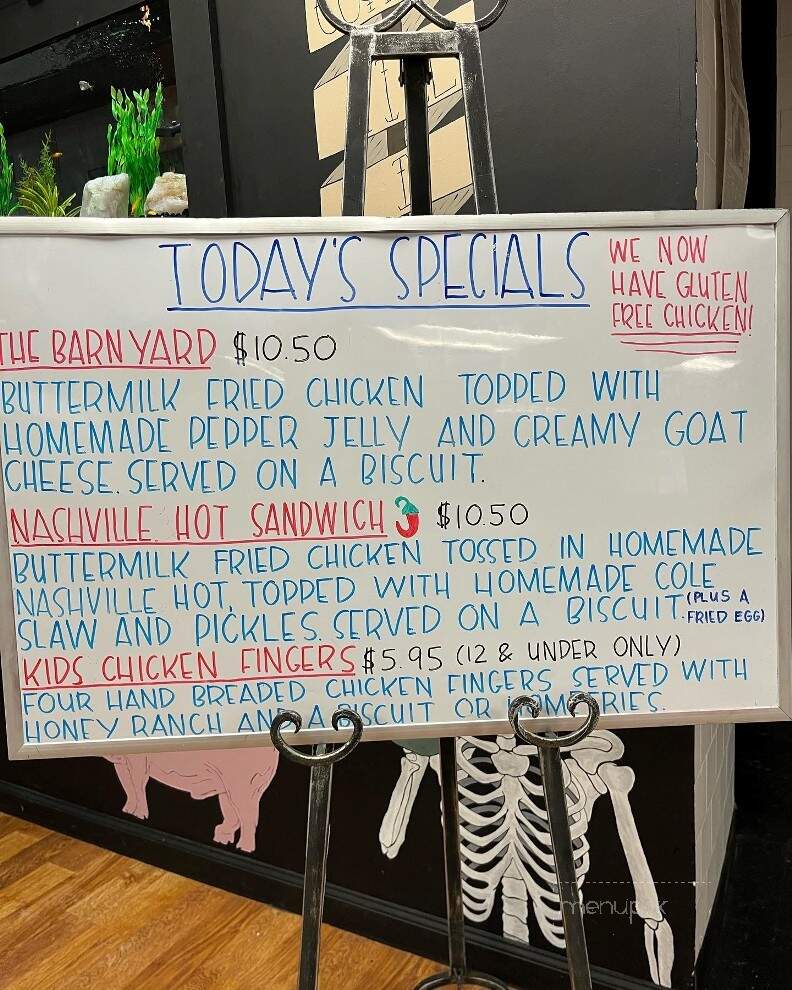 TODAY'S SPECIALS
WE NOW
HAVE GLUTEN
FREE CHICKEN!
THE BARN YARD $10.50
BUTTERMILK FRIED CHICKEN TOPPED WITH
HOMEMADE PEPPER JELLY AND CREAMY GOAT
CHEESE. SERVED ON A BISCUIT.
NASHVILLE HOT SANDWICH $10.50
BUTTERMILK FRIED CHICKEN TOSSED IN HOMEMADE
NASHVILLE HOT, TOPPED WITH HOMEMADE COLE
SLAW AND PICKLES. SERVED ON A BISCUIT. (PLUS A
FRIED EGG)
KIDS CHICKEN FINGERS $5.95 (12 & UNDER ONLY)
FOUR HAND BREADED CHICKEN FINGERS SERVED WITH
HONEY RANCH AND A BISCUIT OR HOMEFRIES.